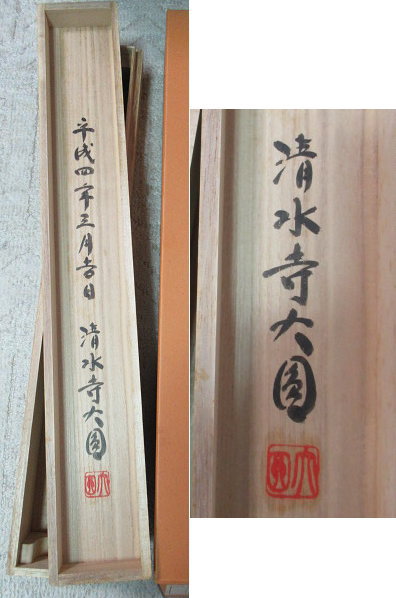 平成四年三月吉日
清水寺大圓
大圓
清水寺大圓
大圓